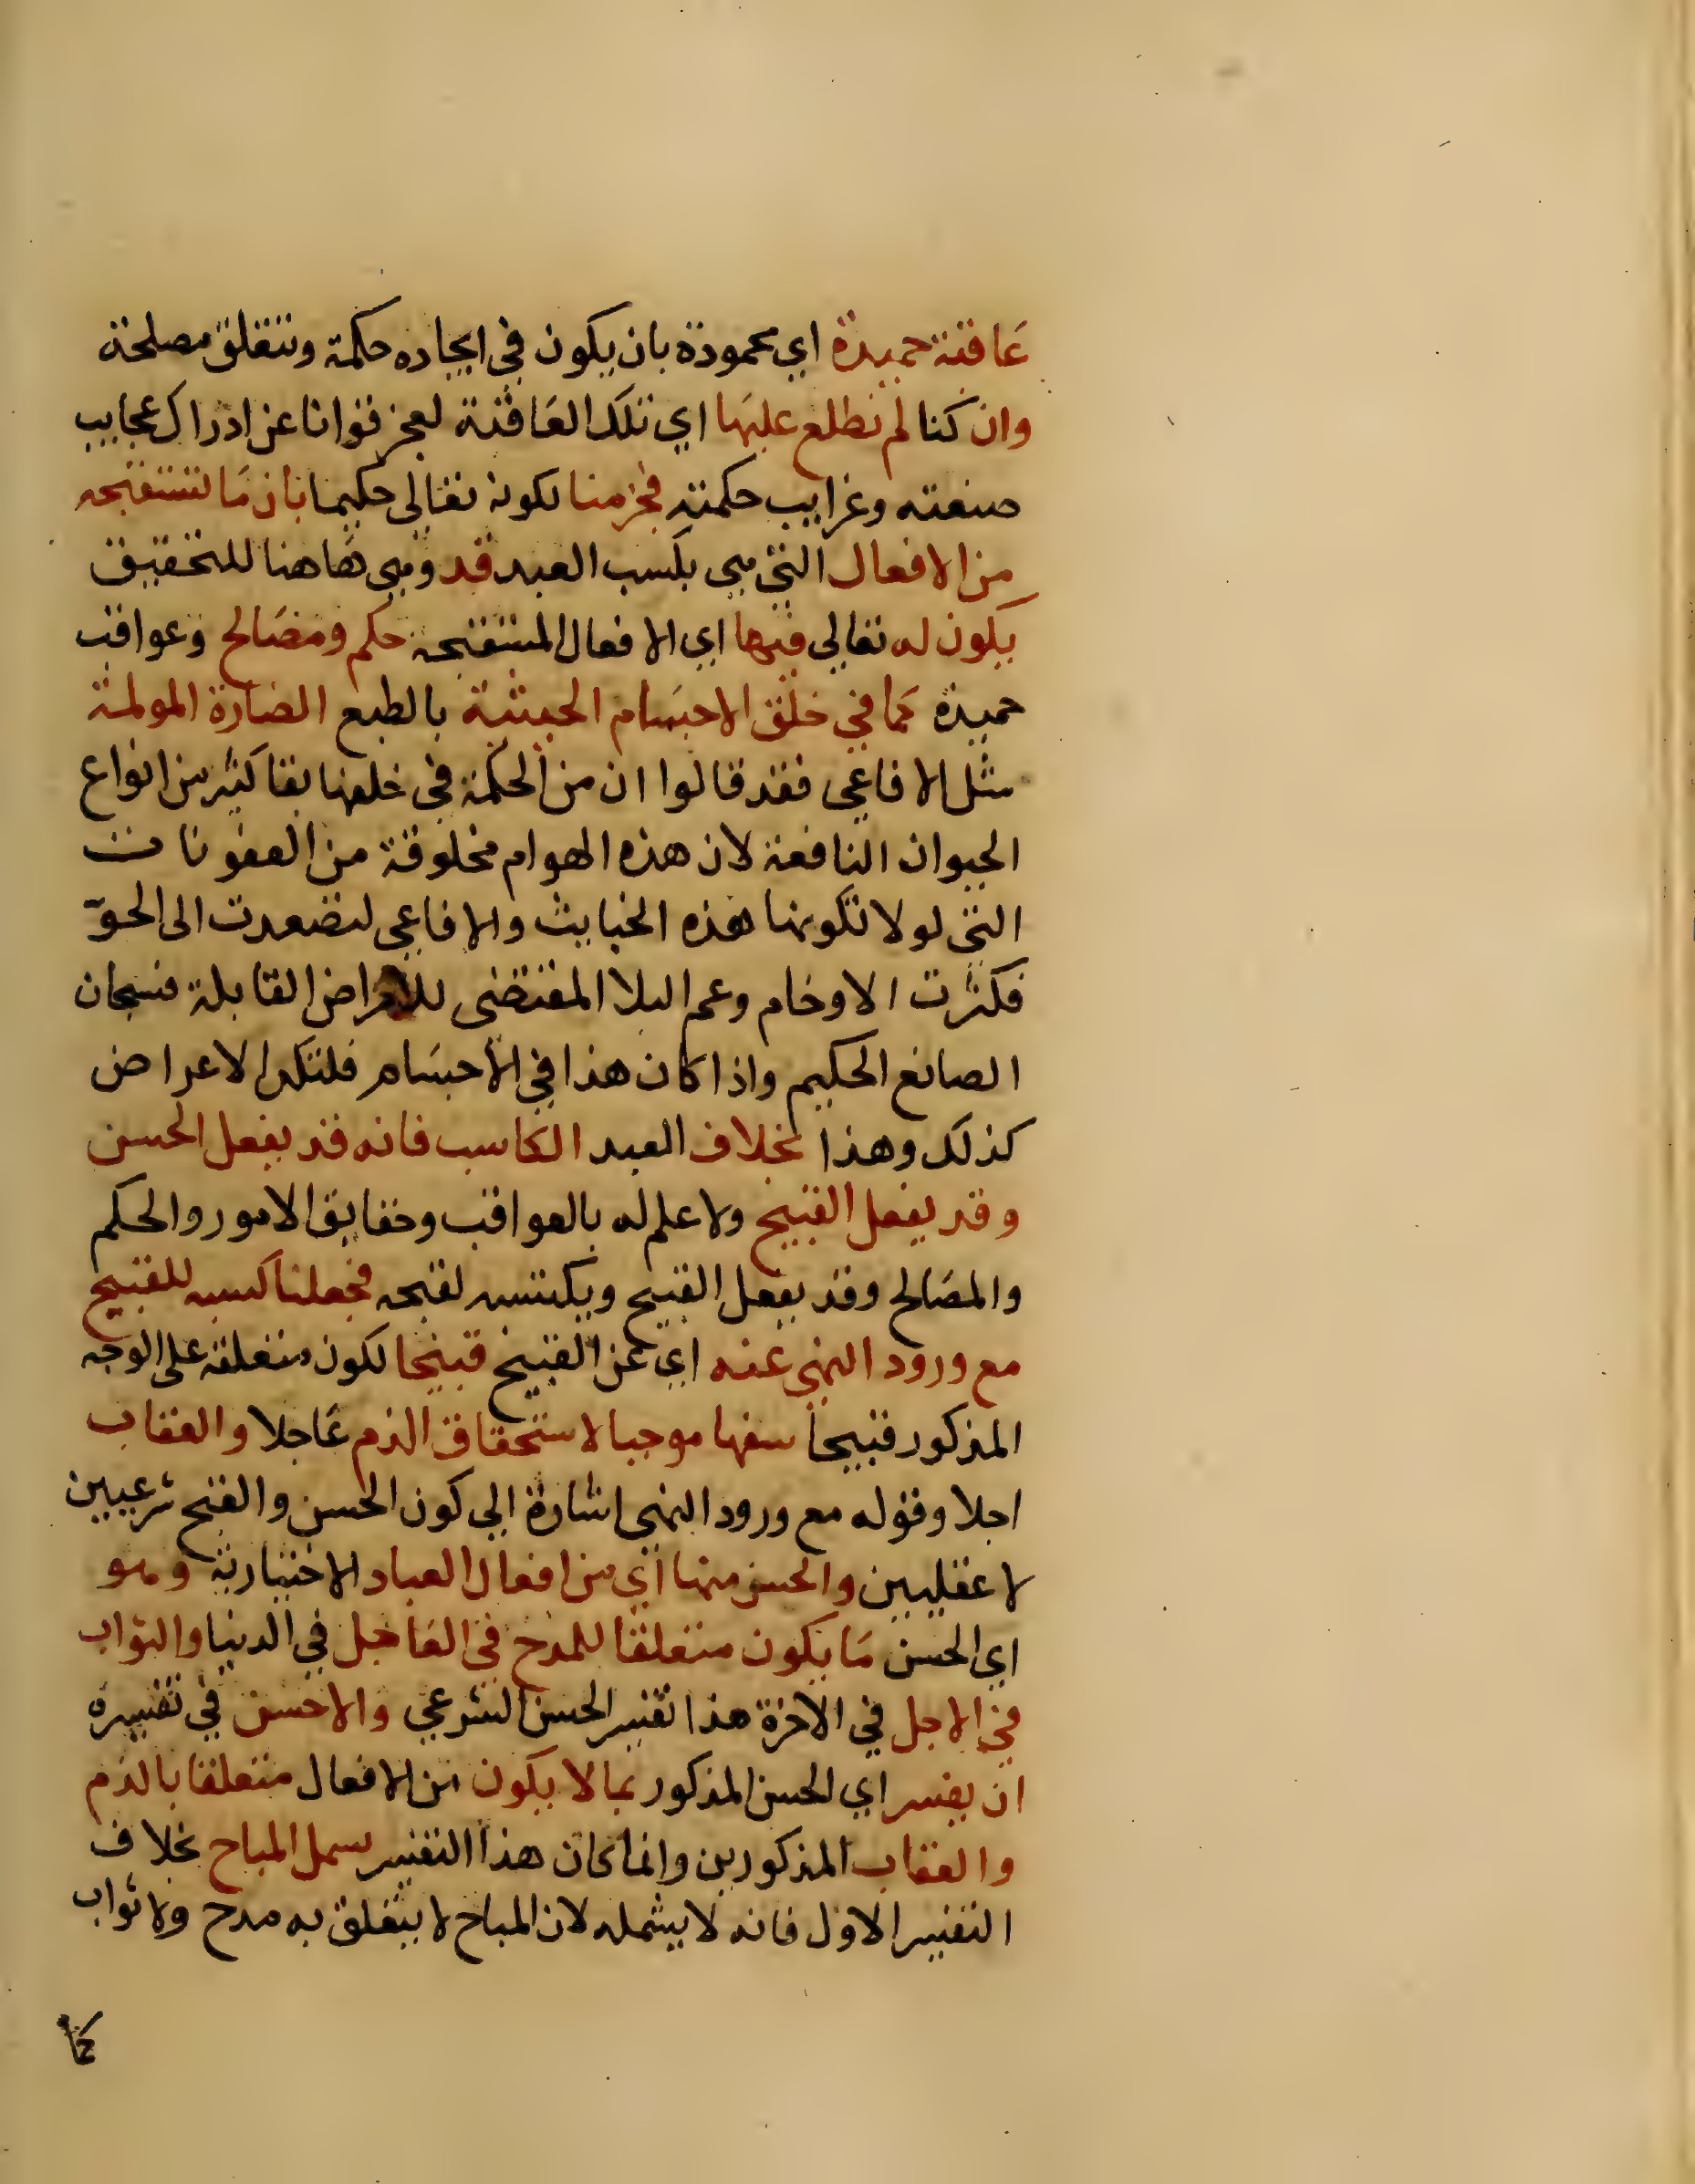 عَاقبة حميدة اي محمودة بان يكون في ايجاده حكمة وتتعلق مصلحة
وان كنا لم نطلع عليها اي تلك العَاقبة لعجز قوانا عن ادراك عجايب
صنعته وغرايب حكمته فجزمنا لكونه تعالى حكيما بان مَا نستقبحه
من الافعال التي هي بكسب العبد قد وهي هَاهنا للتحقيق
يكون له تعالى فيها اي الافعال المستقبحة حكم ومصَالح وعواقب
حميدة كما في خلق الاجسَام الخبيثة بالطبع الضارة المولمة
مثل الافاعي فقد قالوا ان من الحكمة في خلقها بقا كثير من انواع
الحيوان النافعة لان هذه الهوام مخلوقة من العفونات
التي لولا تكونها هذه الخبايث والافاعي لتصعدت الى الجوّ
فكثرت الاوخام وعم البلا المقتضى للامراض القابلة فسبحان
الصانع الحكيم واذا كان هذا في الأجسَام فلتكن الاعراض
كذلك وهذا بخلاف العبد الكاسب فانه قد يفعل الحسن
وقد يفعل القبيح ولا علم له بالعواقب وحقايق الامور والحكم
والمصَالح وقد يفعل القبيح ويكتسبه لقبحه فجعلنا كسبه للقبيح
مع ورود النهي عنه اي عن القبيح قبيحا لكون متعلقه على الوجه
المذكور قبيحا سفها موجبا لاستحقاق الذم عَاجلا والعقاب
اجلا وقوله مع ورود النهي اشارة الي كون الحسن والقبح شرعيين
لا عقليين والحسن منها اي من افعال العباد الاختيارية وهو
اي الحسن مَا يكون متعلقا للمدح في العَاجل في الدنيا والثواب
في الاجل في الاخرة هذا تفسير الحسن الشرعي والاحسن في تفسيره
ان يفسر اي الحسن المذكور بما لا يكون من الافعال متعلقا بالذم
والعقاب المذكورين وانما كان هذا التفسير يسمل المباح بخلاف
التفسير الاول فانه لا يشمله لان المباح لا يتعلق به مدح ولا ثواب